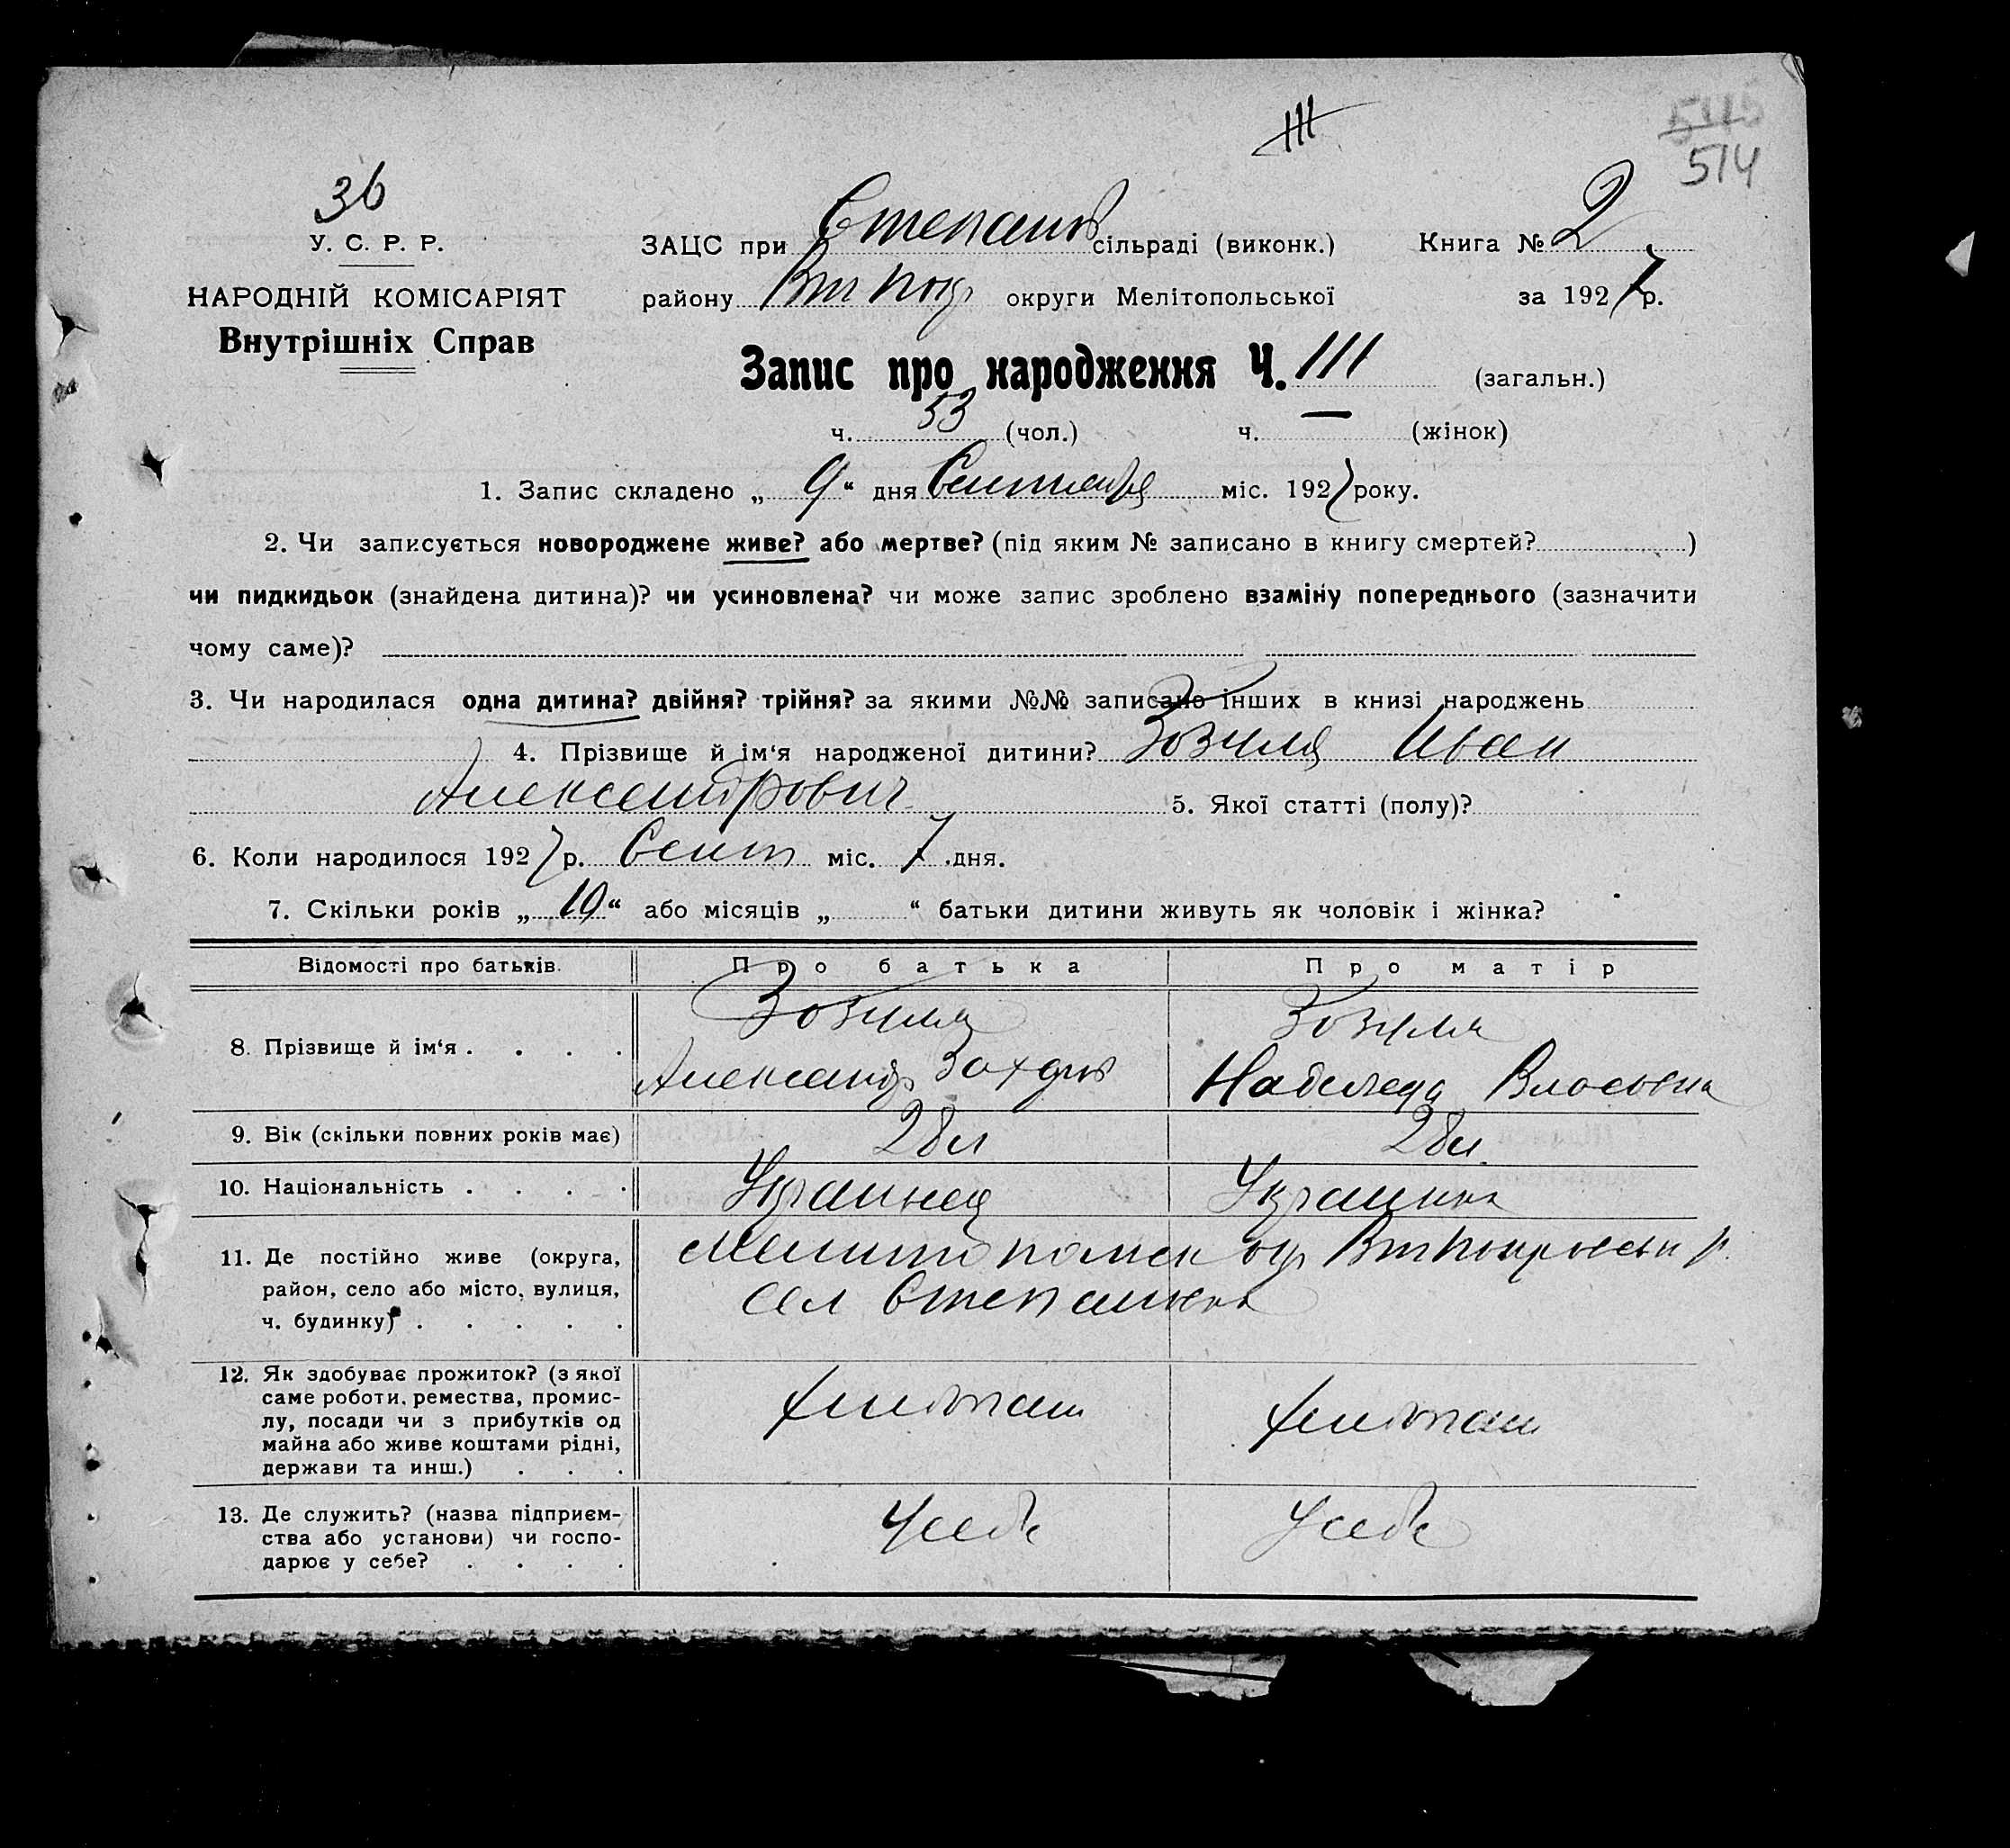 III
545
514
36
У. С. Р. Р.
НАРОДНІЙ КОМІСАРІЯТ
Внутрішніх Справ
ЗАЦС при Степанов сільраді (виконк.) Книга № 2
району Вт Покр округи Мелітопольської за 1927 р.
Запис про народження Ч. 111 (загальн.)
ч. 53 (чол.) ч. — (жінок)
1. Запис складено „ 9 “ дня Сентября міс. 1927 року.
2. Чи записується новороджене живе? або мертве? (під яким № записано в книгу смертей? )
чи пидкидьок (знайдена дитина)? чи усиновлена? чи може запис зроблено взаміну попереднього (зазначити
чому саме)?
3. Чи народилася одна дитина? двійня? трійня? за якими №№ записано інших в книзі народжень
4. Прізвище й ім‘я народженої дитини? Зозуля Иван
Александрович 5. Якої статті (полу)?
6. Коли народилося 1927 р. Сент міс. 7 дня.
7. Скільки років „ 10 “ або місяців „ “ батьки дитини живуть як чоловік і жінка?
Відомості про батьків. Про батька Про матір
8. Прізвище й ім‘я . . . . Зозуля Зозуля
Александр Надежда Власовна
9. Вік (скільки повних років має) 28 л 28 л.
10. Національність . . . . Украинец Украинка
11. Де постійно живе (округа,
район, село або місто, вулиця,
ч. будинку) . . . . .
Мелитополск окр Вт Покровск р.
сел Степановка
12. Як здобуває прожиток? (з якої
саме роботи, ремества, промис-
лу, посади чи з прибутків од
майна або живе коштами рідні,
держави та инш.) . . .
хлебопаш хлебопаш
13. Де служить? (назва підприєм-
ства або установи) чи госпо-
дарює у себе? . . . .
У себе У себе